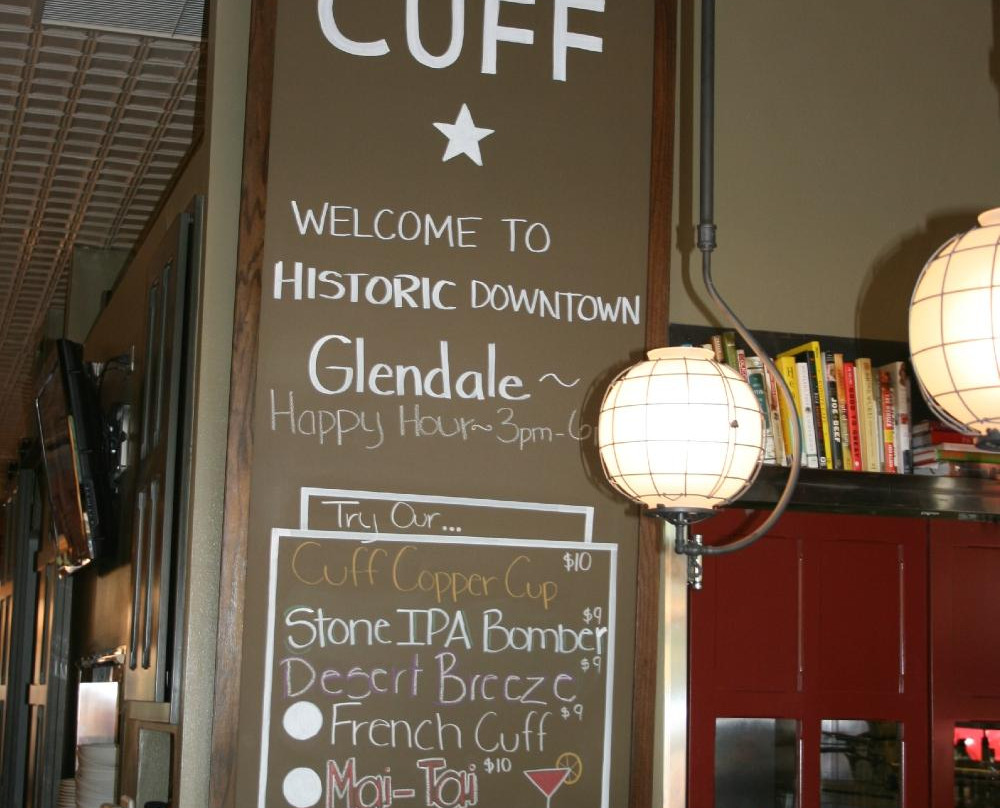 CUFF
WELCOME TO
HISTORIC DOWNTOWN
Glendale ~
Happy Hour~ 3pm-6
Try Our...
Cuff Copper Cup $10
Stone IPA Bomber $9
Desert Breeze $9
French Cuff $9
Mai-Tai $10
JOE BEEF